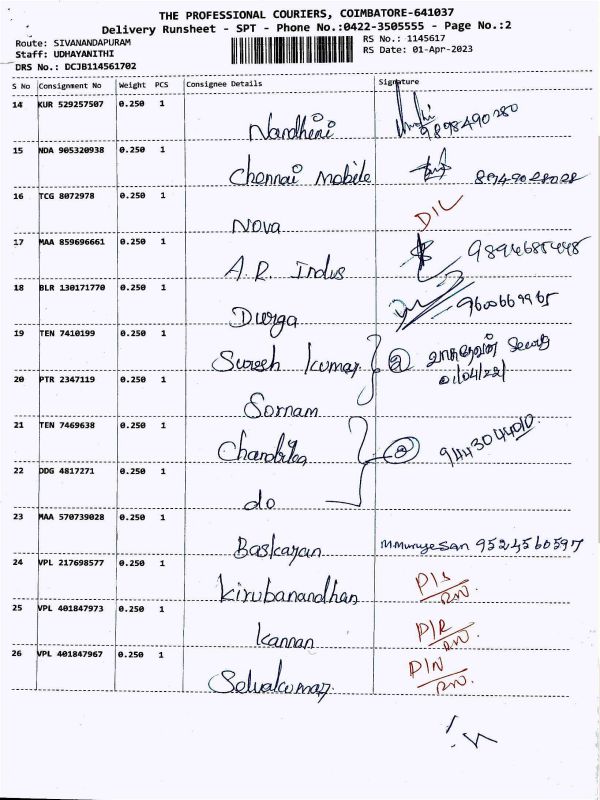 THE PROFESSIONAL COURIERS, COIMBATORE-641037
Delivery Runsheet - SPT - Phone No.:0422-3505555 - Page No.:2
Route: SIVANANDAPURAM
Staff: UDHAYANITHI
DRS No.: DCJB114561702
RS No.: 1145617
RS Date: 01-Apr-2023
S No Consignment No Weight PCS Consignee Details Signature
14 KUR 529257507 0.250 1
Nandhini 9898490280
15 NDA 905320938 0.250 1
Chennai Mobile 8949028028
16 TCG 8072978 0.250 1
Nova D/L
17 MAA 859696661 0.250 1
A.R. Indus 9894685448
18 BLR 130171770 0.250 1
Durga 9600669965
19 TEN 7410199 0.250 1
Suresh Kumar 2
01/04/22/
20 PTR 2347119 0.250 1
Sornam
21 TEN 7469638 0.250 1
2 9443044010
22 DDG 4817271 0.250 1
do
23 MAA 570739028 0.250 1
Baskaran M.Murugesan 9524560597
24 VPL 217698577 0.250 1
Kirubanandhan P/S
RN.
25 VPL 401847973 0.250 1
Kannan P/R
RN.
26 VPL 401847967 0.250 1
Selvakumar P/N
RN.